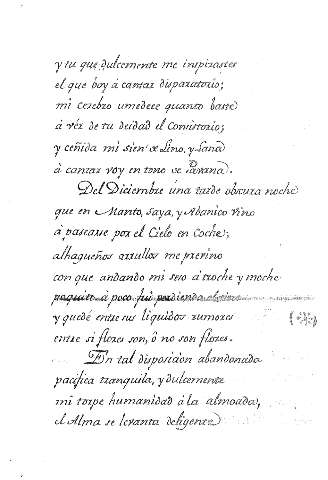 y tu que dulcemente me inspirastes
el que boy á cantar disparatorio;
mi cerebro umedece quanto baste
á vér de tu deidad el Consistorio;
y ceñida mi sien de Lino, y Lana
á cantar voy en tono de Pavana.
Del Diciembre úna tarde obscura noche
que en Manto, Saya, y Abanico vino
á pasearse por el Cielo en Coche;
alhagueños arrullos me previno
con que andando mi seso á troche y moche
poquito á poco fui perdiendo el
y quedé entre sus liquidos rumores
entre si flores son, ó no son flores.
En tal disposicion abandonada
pacifica tranquila, y dulcemente
mi torpe humanidad á la almoada;
el Alma se levanta deligente